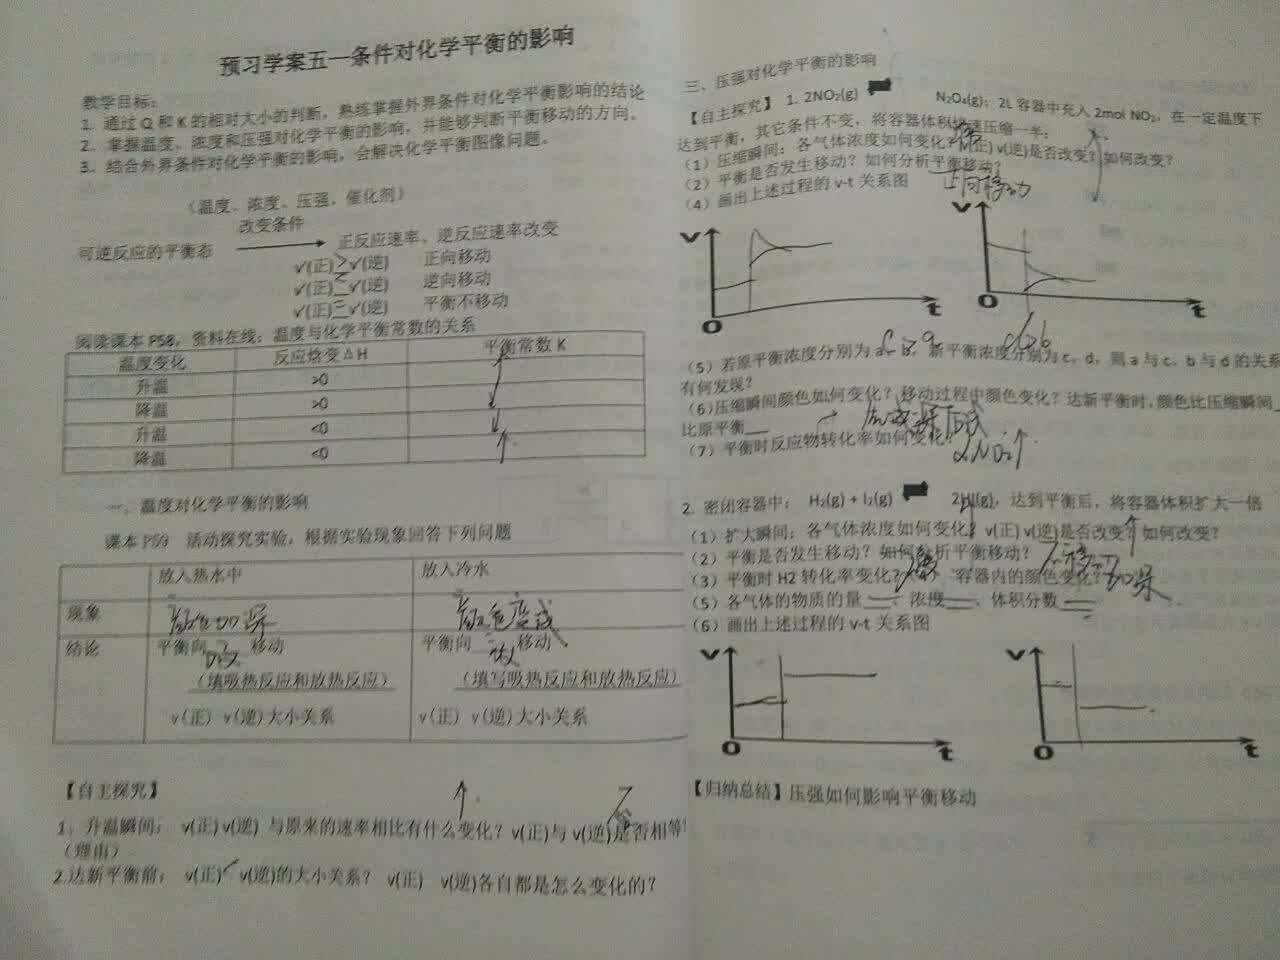 预习学案五一条件对化学平衡的影响
教学目标:
1. 通过Q和K的相对大小的判断，熟练掌握外界条件对化学平衡影响的结论
2. 掌握温度、浓度和压强对化学平衡的影响，并能够判断平衡移动的方向。
3. 结合外界条件对化学平衡的影响，会解决化学平衡图像问题。
（温度、浓度、压强、催化剂）
改变条件
可逆反应的平衡态
正反应速率、逆反应速率改变
v'(正)>v'(逆) 正向移动
v'(正)<v'(逆) 逆向移动
v'(正)=v'(逆) 平衡不移动
阅读课本P58，资料在线：温度与化学平衡常数的关系
温度变化 反应焓变△H 平衡常数K
升温 >0
降温 >0 ↓
升温 <0 ↓
降温 <0 ↑
一、温度对化学平衡的影响
课本P59 活动探究实验，根据实验现象回答下列问题
放入热水中 放入冷水
现象 颜色加深 颜色变浅
结论 平衡向 吸 移动 平衡向 放 移动
（填吸热反应和放热反应） （填写吸热反应和放热反应）
v(正) v(逆)大小关系 v(正) v(逆)大小关系
【自主探究】
↑
1、升温瞬间： v(正) v(逆) 与原来的速率相比有什么变化？v(正)与v(逆)是否相等？
（理由）
2.达新平衡前： v(正) v(逆)的大小关系？ v(正) v(逆)各自都是怎么变化的？
三、压强对化学平衡的影响
【自主探究】 1. 2NO₂(g) N₂O₄(g)；2L容器中充入2mol NO₂，在一定温度下
达到平衡，其它条件不变，将容器体积快速压缩一半：
（1）压缩瞬间：各气体浓度如何变化？v(正) v(逆)是否改变？如何改变？
（2）平衡是否发生移动？如何分析平衡移动？
正向移动
（4）画出上述过程的v-t关系图
V t O
V t O
（5）若原平衡浓度分别为a、b，新平衡浓度分别为c、d，则a与c、b与d的关系
有何发现？
c>a d>b
（6）压缩瞬间颜色如何变化？移动过程中颜色变化？达新平衡时，颜色比压缩瞬间
比原平衡
（7）平衡时反应物转化率如何变化？
αNO₂↑
2. 密闭容器中： H₂(g) + I₂(g) 2HI(g)，达到平衡后，将容器体积扩大一倍
（1）扩大瞬间：各气体浓度如何变化？v(正) v(逆)是否改变？如何改变？
（2）平衡是否发生移动？如何分析平衡移动？ 不移动
（3）平衡时H2转化率变化？ 容器内的颜色变化？
（5）各气体的物质的量 、浓度 、体积分数
（6）画出上述过程的v-t关系图
V t O
V t O
【归纳总结】压强如何影响平衡移动